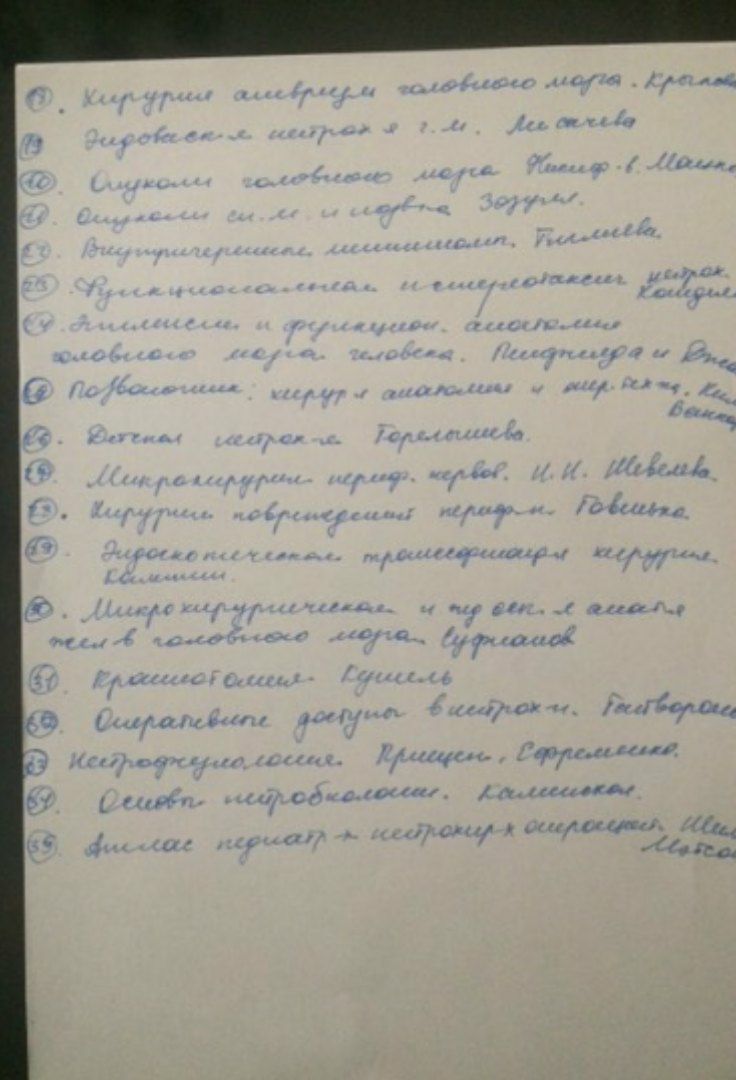 18. Хирургия аневризм головного мозга. Крылова
19 Эндоваск-я нейрох-я г.м. Лисачева
20. Опухоли головного мозга Никиф-в. Мацко
21. Опухоли сп.м. и позв-ка Зозуля.
22. Внутричерепные менингиомы. Тиглиева.
23. Функциональная и стереотаксич нейрох.
Кандель
24. Эпилепсия и функцион. анатомия
головного мозга человека. Пенфилда и Джа
25 Позвоночник: хирург-я анатомия и опер. тех-ка. Ким
Ваккар
26. Детская нейрох-я Горелышева.
27. Микрохирургия периф. нервов. И.Н. Шевелева.
28. Хирургия повреждений периф-н. Говенько
29. Эндоскопическая транссфеноид хирургия
Калинин.
30. Микрохирургическая и эндоск-я анат-я
жел-в головного мозга Суфианов
31. Краниотомия Кушель
32. Оперативные доступы в нейрох-и. Гайворонс
33 Нейрофизиология Прищеп, Ефременко.
34. Основы нейробиологии. Каменская.
35. Атлас педиатр-х нейрохир-х операций.
Мэтсон